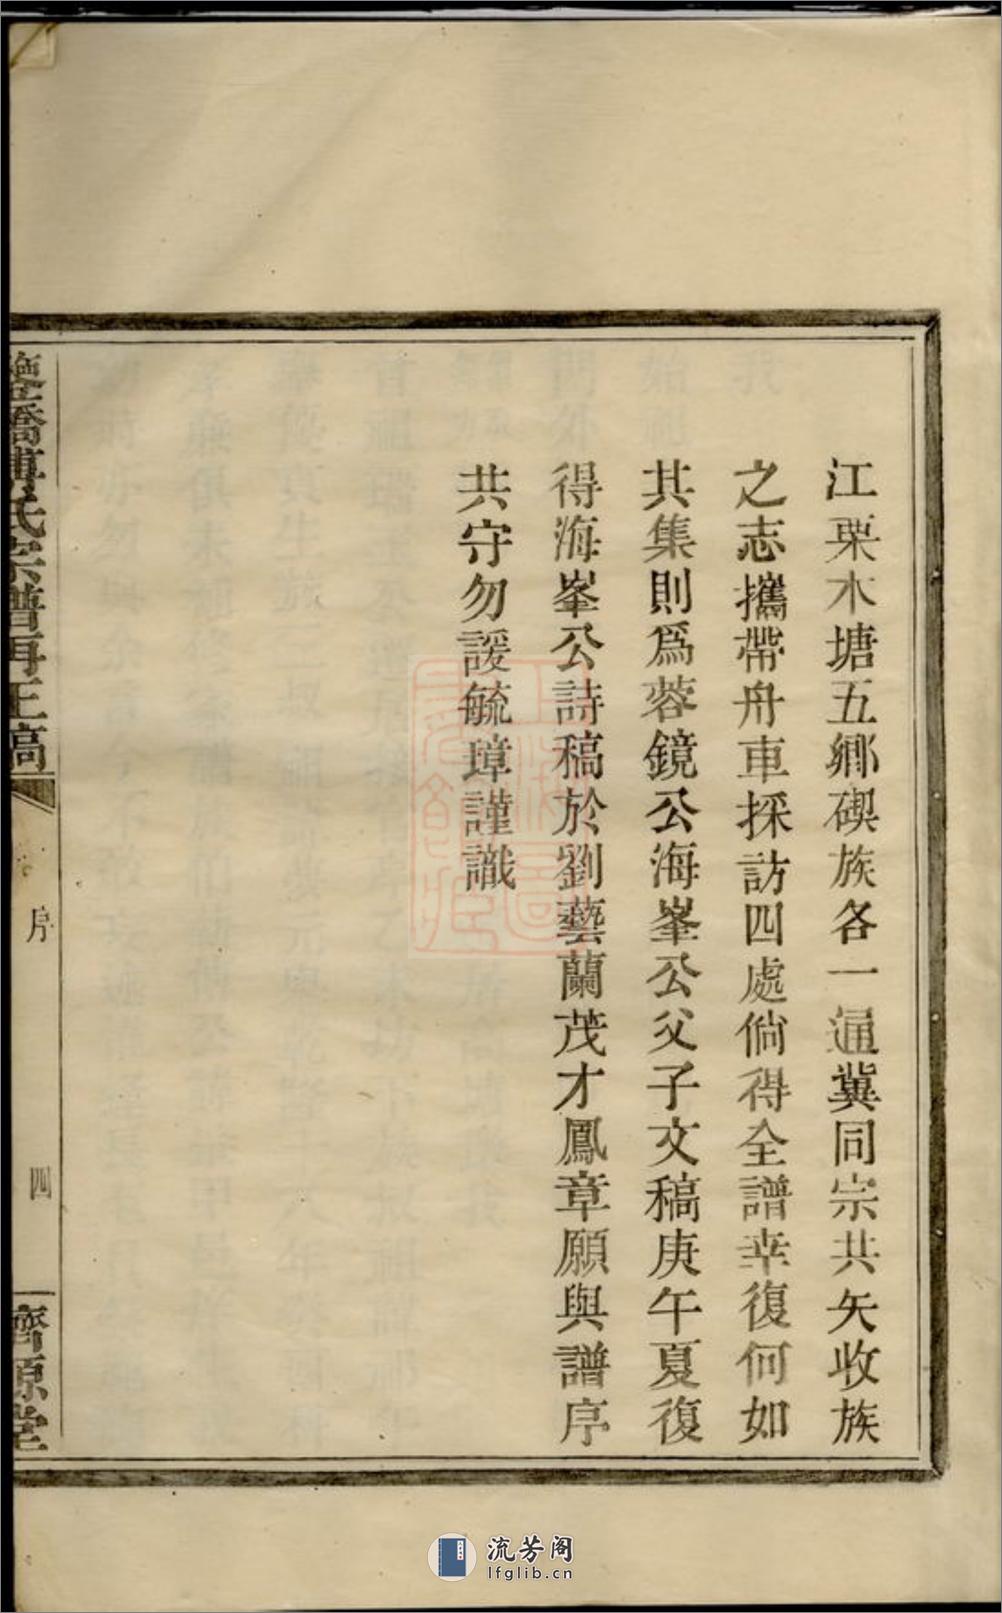 江栗木塘五鄉碶族各一通冀同宗共矢收族
之志攜帶舟車採訪四處倘得全譜幸復何如
其集則爲蓉鏡公海峯公父子文稿庚午夏復
得海峯公詩稿於劉藝蘭茂才鳳章願與譜序
共守勿諼毓璋謹識
橋傅氏宗譜再正稿
序
四
濟源堂
流芳阁
lfglib.cn